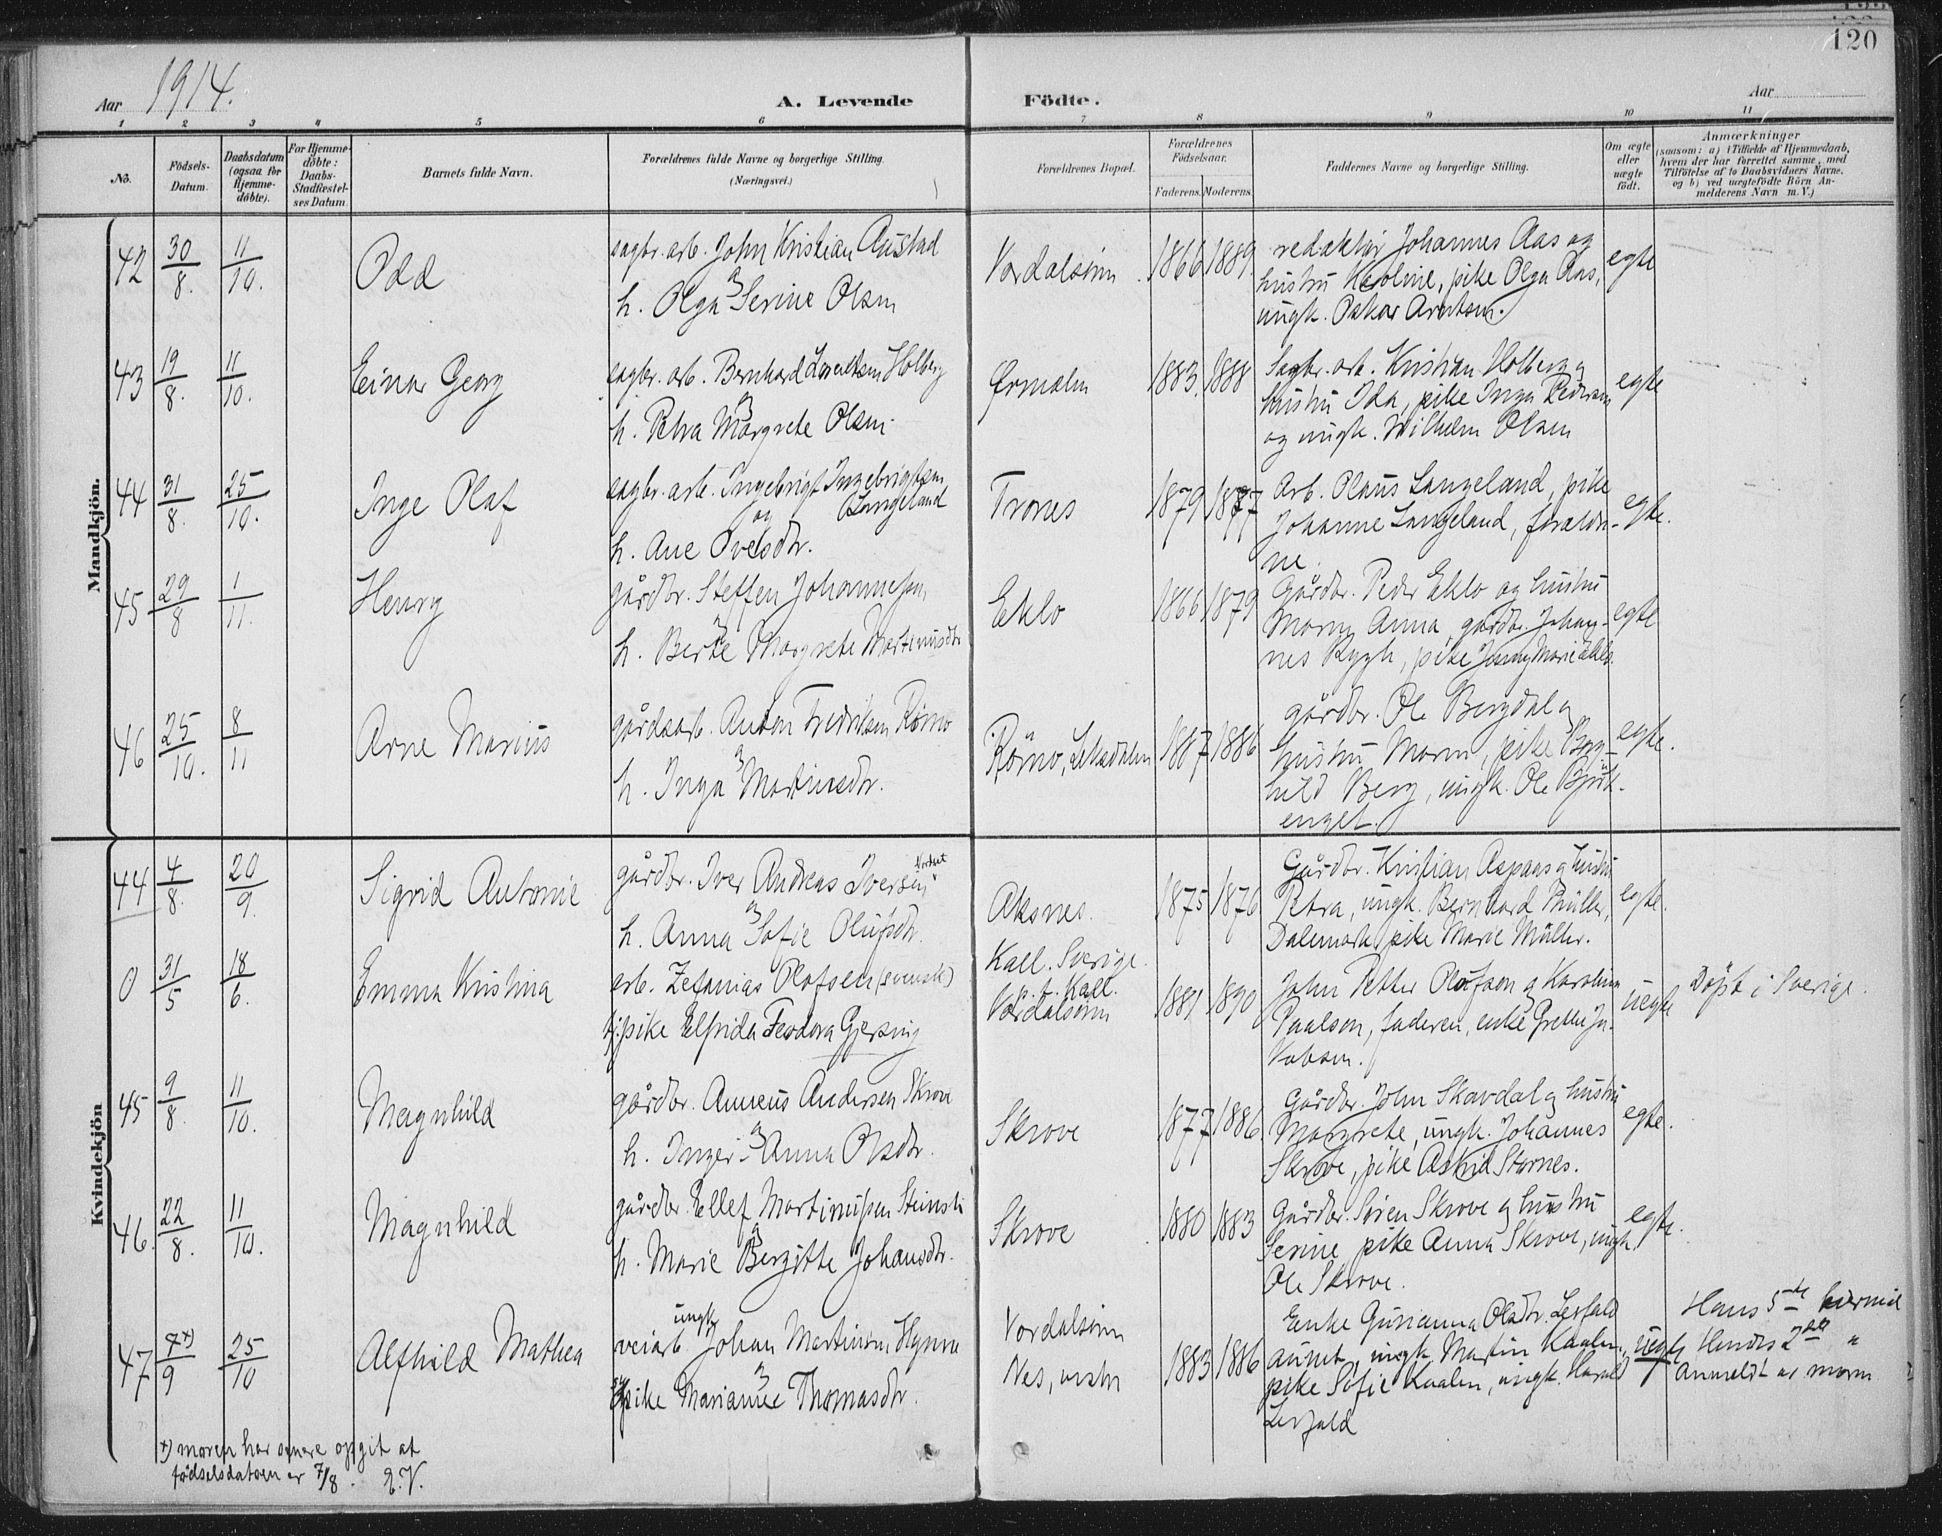 120
Aar 1914.
A. Levende
Födte.
Aar
1 2 3 4 5 6 7 8 9 10 11
No.
Födsels-
Datum.
Daabsdatum
(ogsaa for
Hjemme-
döbte).
For Hjemme-
döbte:
Daabs-
Stadfæstel-
ses Datum.
Barnets fulde Navn.
Forældrenes fulde Navne og borgerlige Stilling.
(Næringsvei.)
Forældrenes Bopæl.
Forældrenes
Födselsaar.
Faderens. Moderens.
Faddernes Navne og borgerlige Stilling.
Om ægte
eller
uægte
födt.
Anmærkninger
(saasom: a) i Tilfælde af Hjemmedaab,
hvem der har forrettet samme, med
Tilföielse af to Daabsvidners Navne,
og b) ved uægtefödte Börn An-
melderens Navn m. V.)
Mandkjön.
42 30/8. 11/10. Odd
sagbr. arb. John Kristian Austad
og
h. Olga Serine Olsen
Verdalsøren 1866 1889.
redaktør Johannes Aas og
hustru Karoline, pike Olga Aas,
ungk. Oskar Arntsen.
egte
43 19/8. 11/10. Einar Georg
sagbr. arb. Bernhard Lorentsen Holberg
og
h. Petra Margrete Olsen
Ørmelen 1883. 1888
Sagbr. arb. Kristian Holberg og
hustru Ida, pike Inga Pedersen
og ungk. Wilhelm Olsen
egte
44 31/8. 25/10. Inge Olaf
sagbr. arb. Ingebrigt Ingebrigtsen
og Langeland
h. Ane Ovesdtr.
Trones 1879 1877
Arb. Olaus Langeland, pike
Johanne Langeland, forældre-
ne.
egte.
45 29/8 1/11. Henry
gårdbr. Steffen Johannesen,
h. Berte Margrete Martinusdtr
Eklo 1866 1879
Gårdbr. Peder Eklo og hustru
Marny Anna, gårdbr. Johan-
nes Rygh, pike Jenny Marie Eklo.
egte
46 25/10. 8/11 Arne Marius
gårdsarb. Anton Fredriksen Rømo
og
h. Inga Martinusdtr.
Römo, Leksdalen 1887 1886
gårdbr. Ole Bergdal og
hustru Maren, pike Borg-
hild Berg, ungk. Ole Bjørk-
enget.
egte.
Kvindekjön
44 4/8. 20/9. Sigrid Antonie
gårdbr. Iver Andreas Iversen
og
h. Anna Sofie Olufsdtr.
Aksnes. 1875 1876
Gårdbr. Kristian Aspaas og hustru
Petra, ungk. Bernhard Müller,
Dalemark, pike Marie Müller.
egte.
0 31/5 18/6. Emma Kristina
arb. Zefanias Olofsen (svensk)
pike Elfrida Feodora Gjersing
Kall. Sverige.
p. t. Kall.
Verdalsøren 1881 1890
John Petter Olofson og Karolina
Paulson, faderen, enke Grethe Ja-
kobsen.
uegte
Døpt i Sverige.
45 9/8. 11/10. Magnhild
gårdbr. Anneus Andersen Skrove
og
h. Inger-Anna Olsdtr.
Skrove 1877 1886
Gårdbr. John Skavdal og hustru
Margrete, ungk. Johannes
Skrove, pike Astrid Stornes.
egte.
46. 22/8. 11/10. Magnhild
gårdbr. Ellef Martinussen
og
h. Marie Bergitte Johansdtr.
Skrove 1880 1883
Gårdbr. Sören Skrove og hustru
Serine, pike Anna Skrove, ungk.
Ole Skrove.
egte.
47 7x)/9 25/10 Alfhild Mathea
ungk.
veiarb. Johan Martinsen Hynne
og
pike Marianne Thomasdtr.
Verdalsøren
Nes, vestre 1883 1886
Enke Gurianna Olsdtr. Leirfald
aunet, ungk. Martin Kaalen,
pike Sofie Kaalen, ungk. Harald
Leirfald
uegte
Hans 5te
Hendes 2det "
Anmeldt av moren
x) moren har senere opgit at
födselsdatoen er 7/8. E.V.